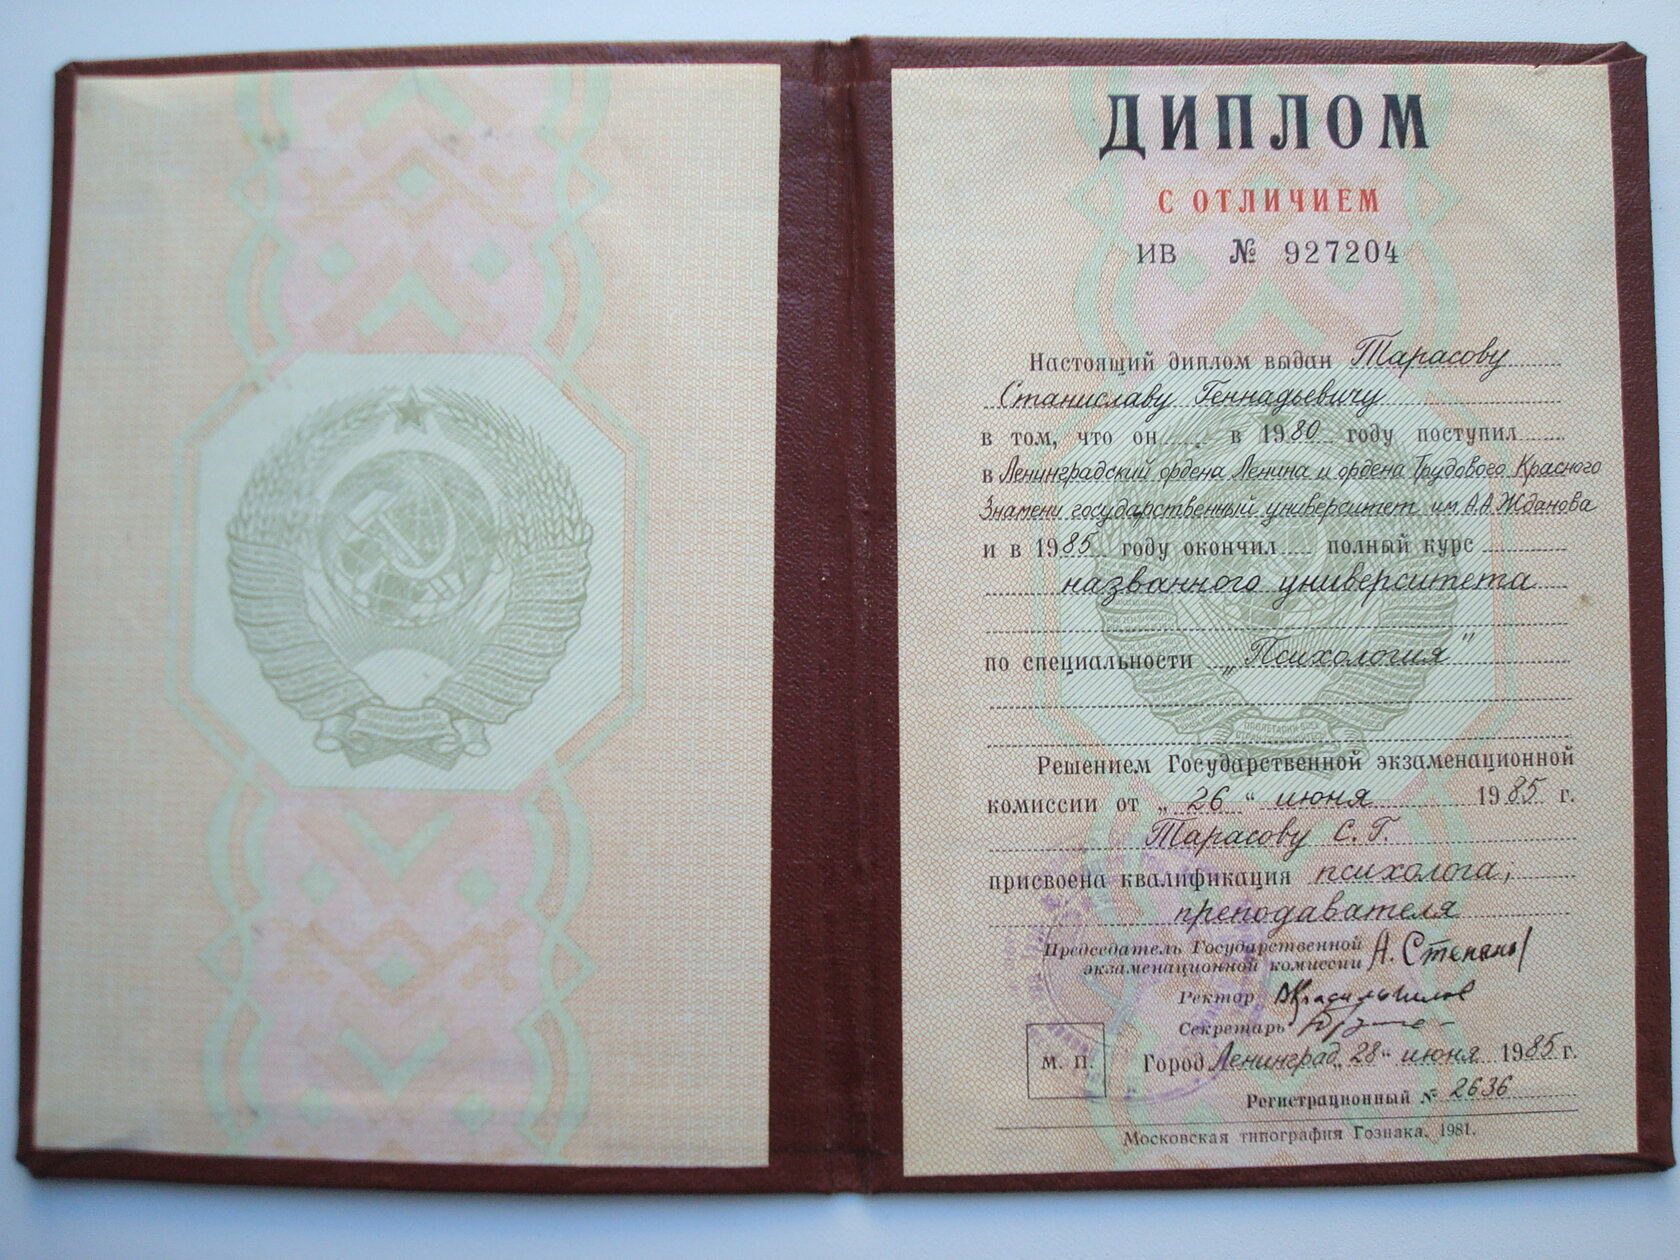 ДИПЛОМ
С ОТЛИЧИЕМ
ИВ № 927204
Настоящий диплом выдан Тарасову
Станиславу Геннадьевичу
в том, что он в 1980 году поступил
в Ленинградский ордена Ленина и ордена Трудового Красного
Знамени государственный университет им. А.А.Жданова
и в 1985 году окончил полный курс
названного университета
по специальности „Психология"
ПРОЛЕТАРИИ ВСЕХ
Решением Государственной экзаменационной
комиссии от „26" июня 1985 г.
Тарасову С. Г.
присвоена квалификация психолога,
преподавателя
Председатель Государственной
экзаменационной комиссии А. Степанов
Ректор
Секретарь
М. П.
Город Ленинград „28" июня 1985 г.
Регистрационный № 2636
Московская типография Гознака. 1981.